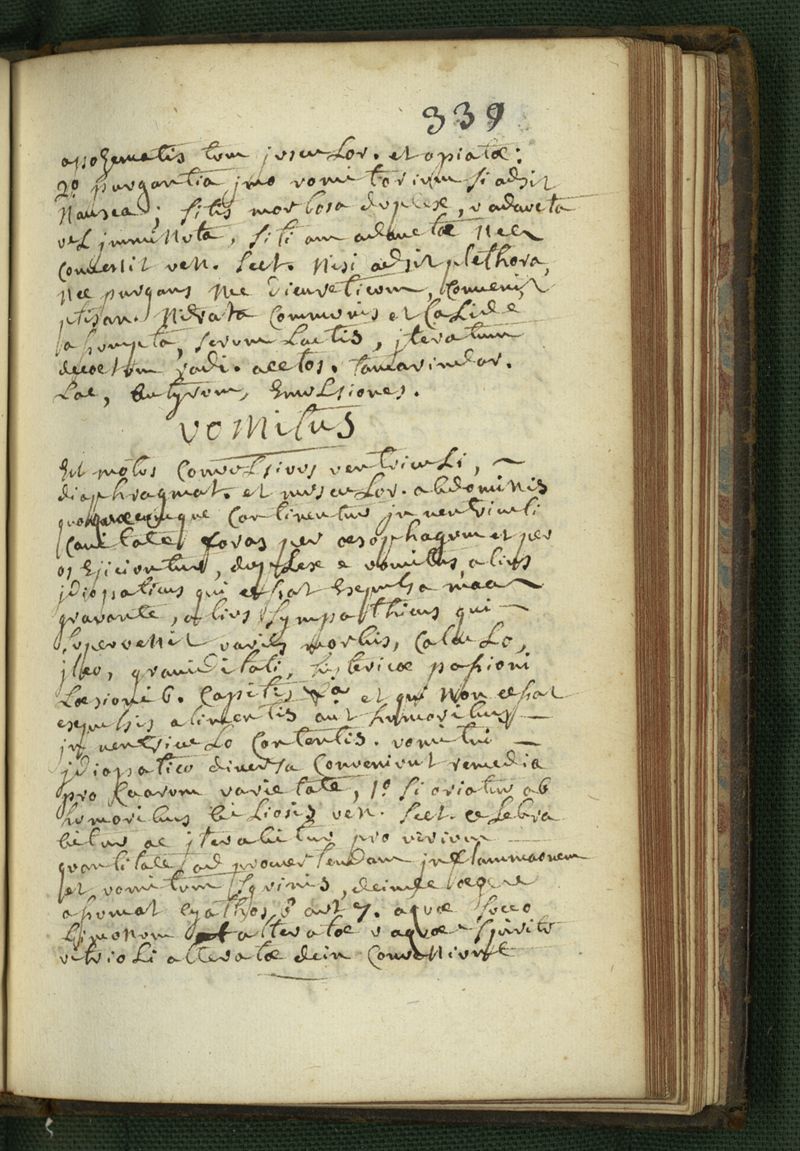 339
apozematis tum juscuLor. et opiatæ:
2º purgantia jmo vomitorium si adsit
Nausea; sitis morbosa duplex, v adaucta
veL jmminuta, siti am adauctæ Nec
Convenit ven. sect. Nisi adsit plethora,
Nec purgans Nec diureticum, Convenit
ptisan. Nitrata Communis et CaLide
assumpta, serum Lactis, jteratum
decoctum radi. acetos. tamarindor.
Lac, butyrum, EmuLsiones.
vomitus
Est motus ConvuLsivus ventricuLi,
diaphragmat. et muscuLor. abdominis
quo quæcumque Continentur jn ventriculi
Cavitate foras per œsophagum et per
os Ejiciuntur, dupLex e vomitus, alius
jdiopaticus qui cessat Expulsa maa
gravante, alius sympathicus qui
supervenit variis morbis, CalcuLo,
jleo, graviditati, hystericæ passioni
Læsionib. Capitis et qui Non cessat
expulsis alimentis aut humoribus
jn ventricuLo Contentis. vomitui
jdiopatico diversa Conveniunt remedia
pro Caarum varietate, 1º si oriatur ab
humoribus biLiosis ven. sect. ceLebra
bitur ac jterabitur pro virium
quantitate ad prævertendam jnflammaonem
et vomitum sqvinis, deinde æger
assumat Cyathos 6 aut 7. aquæ succo
Limonum alteratæ v aquæ spiritu
vitrioLi alteratæ dein Conveniunt